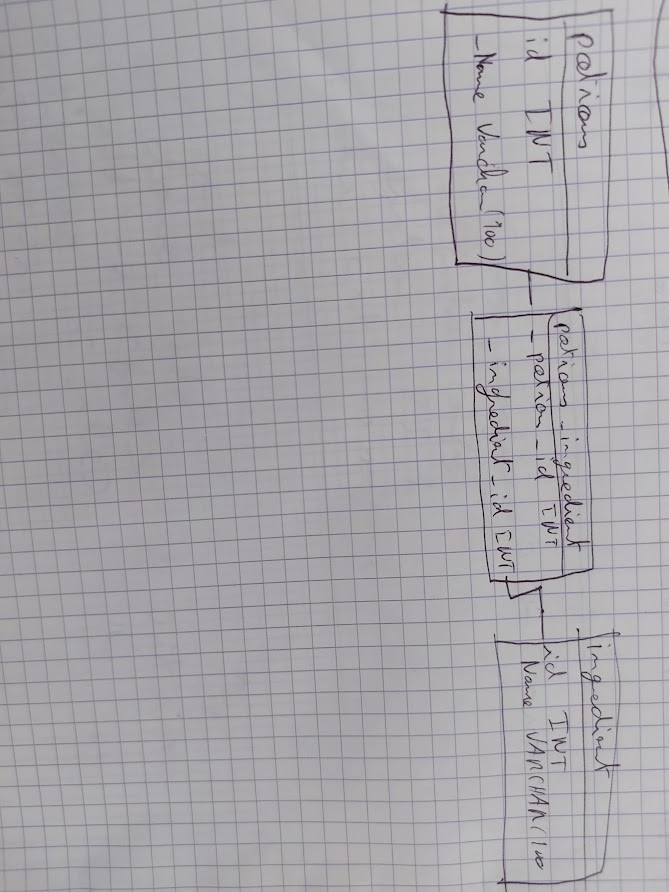 potions
id INT
- Name Varchar(100)
potions - ingredient
- potion - id INT
- ingredient - id INT
ingredient
id INT
Name VARCHAR(100